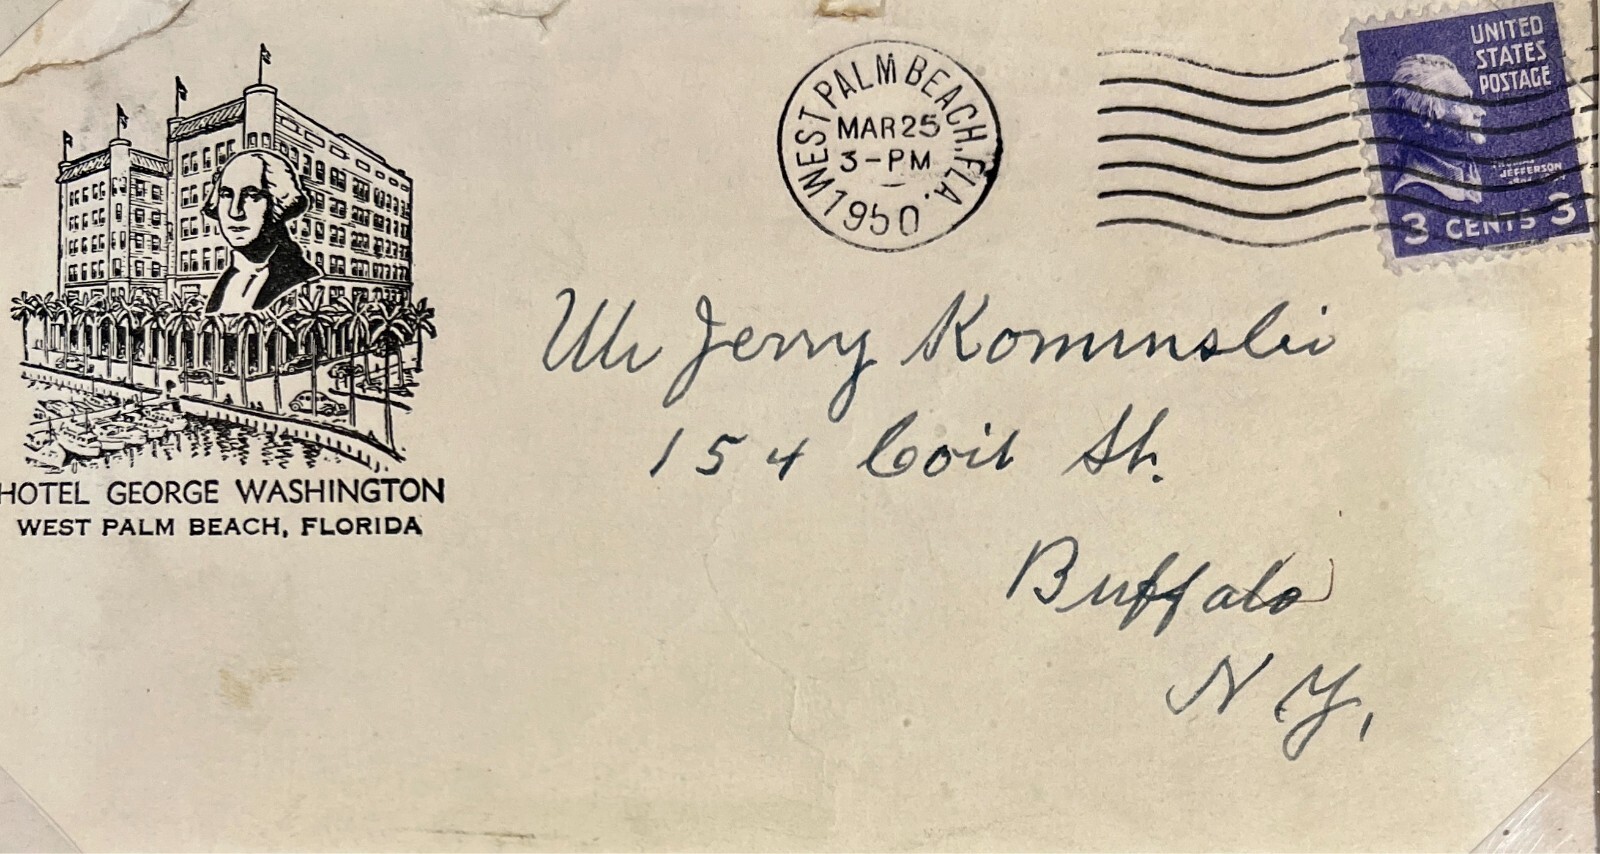 HOTEL GEORGE WASHINGTON
WEST PALM BEACH, FLORIDA
WEST PALM BEACH, FLA.
MAR 25
3-PM
1950
UNITED
STATES
POSTAGE
JEFFERSON
3 CENTS 3
Mr Jerry Kominski
154 Coit St.
Buffalo
N.Y.